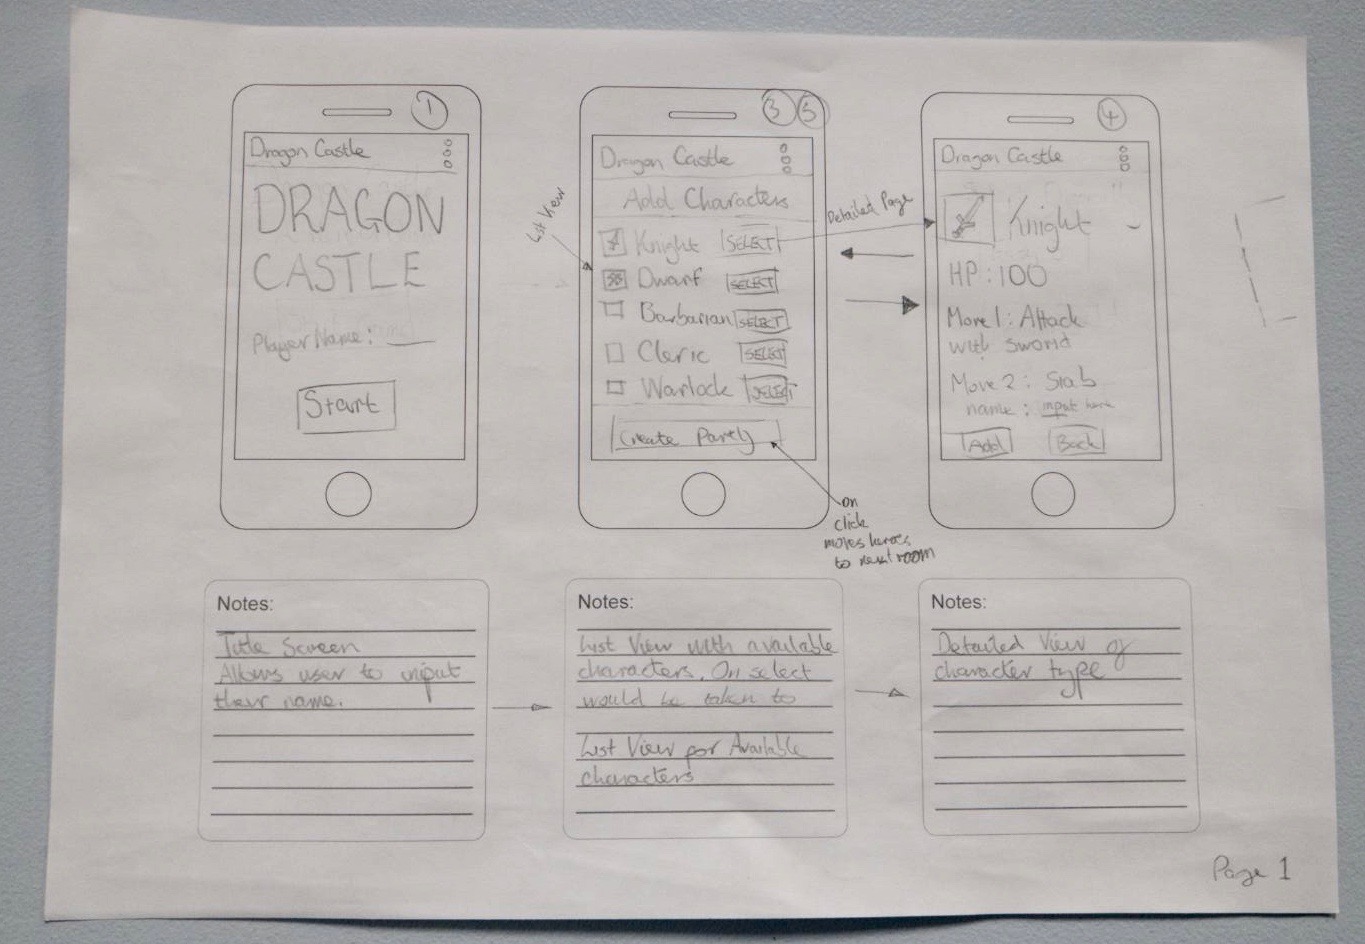 1
Dragon Castle
DRAGON
CASTLE
Player Name:
Start
3 5
Dragon Castle
Add Characters
Knight SELECT
Dwarf SELECT
Barbarian SELECT
Cleric SELECT
Warlock SELECT
Create Party
List View
Detailed Page
on
click
moves heroes
to next room
4
Dragon Castle
Knight
HP: 100
Move 1: Attack
with sword
Move 2: Stab
name: input here
Add Back
Notes:
Title Screen
Allows user to input
their name.
Notes:
List View with available
characters. On select
would be taken to
List View for Available
characters
Notes:
Detailed View of
character type
Page 1